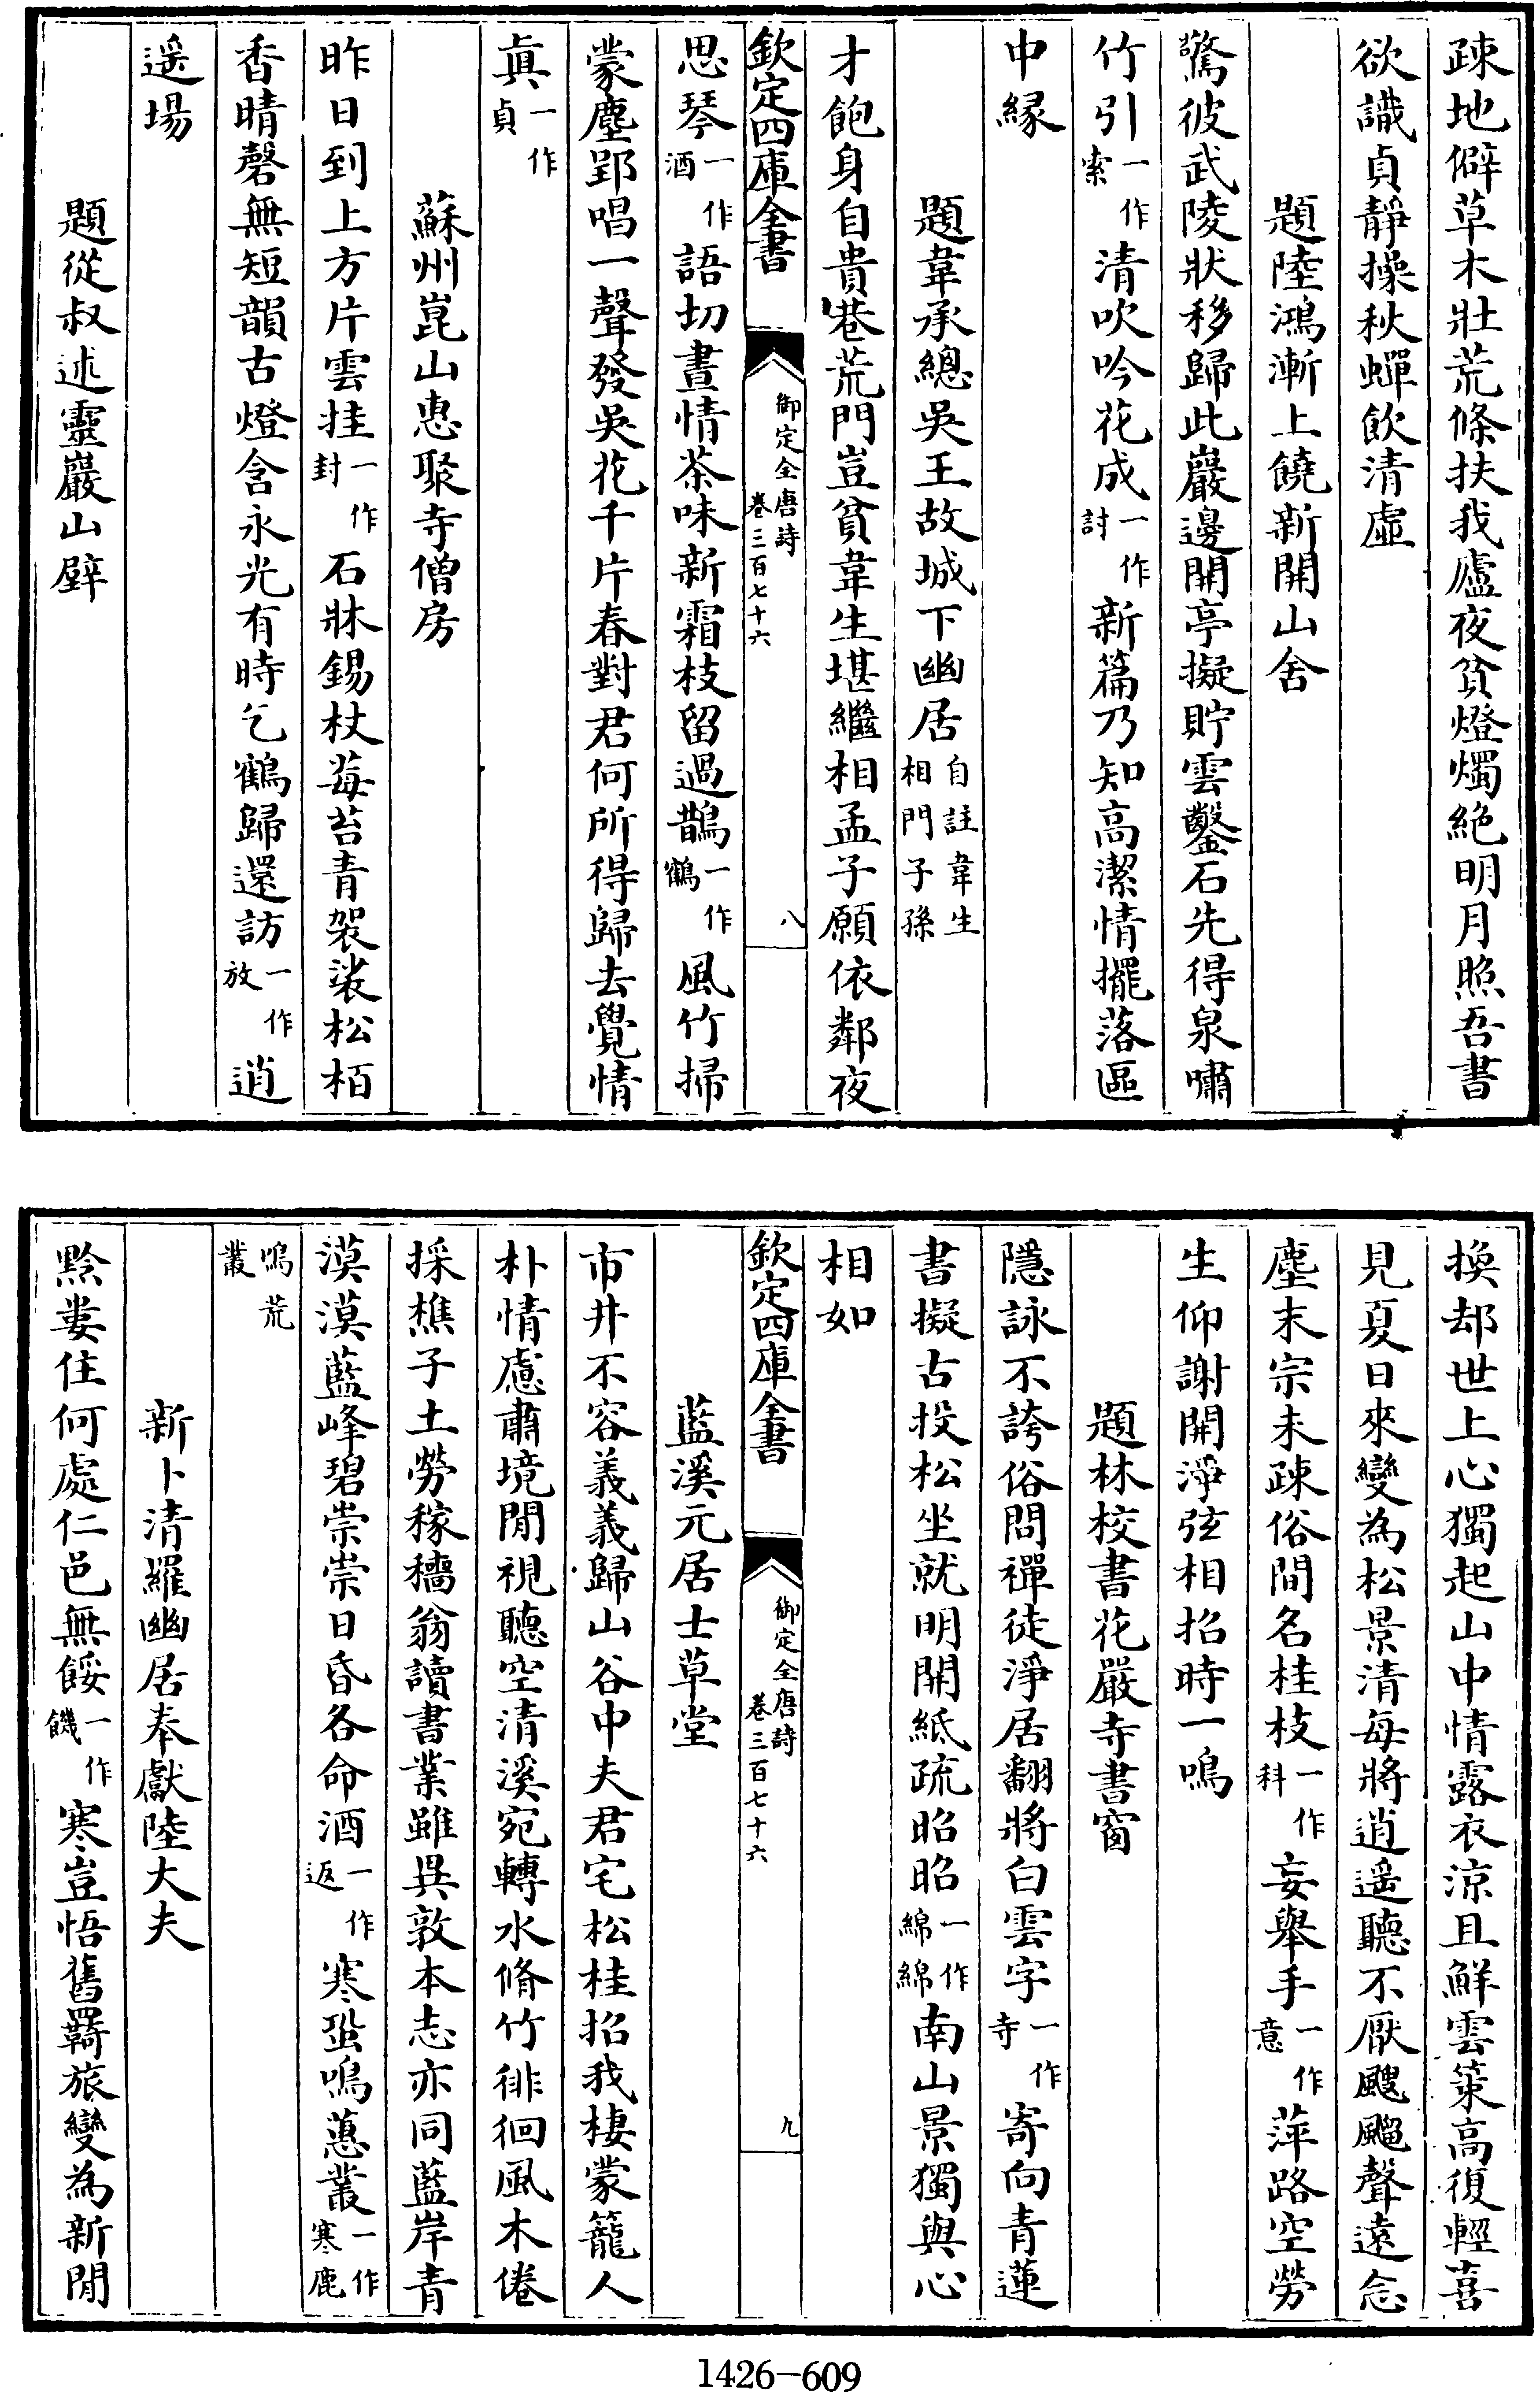 疎地僻草木壯荒條扶我廬夜貧燈燭絶明月照吾書
欲識貞靜操秋蟬飲清虛
題陸鴻漸上饒新開山舍
驚彼武陵狀移歸此巖邊開亭擬貯雲鑿石先得泉嘯
竹引一作索清吹吟花成一作討新篇乃知高潔情擺落區
中縁
題韋承總吳王故城下幽居自註韋生相門子孫
才飽身自貴巷荒門豈貧韋生堪繼相孟子願依鄰夜
欽定四庫全書
御定全唐詩
卷三百七十六
八
思琴一作酒語切晝情茶味新霜枝留過鵲一作鶴風竹掃
蒙塵郢唱一聲發吳花千片春對君何所得歸去覺情
真一作貞
蘇州崑山惠聚寺僧房
昨日到上方片雲挂一作封石牀錫杖莓苔青袈裟松栢
香晴磬無短韻古燈含永光有時乞鶴歸還訪一作放逍
遥場
題從叔述靈巖山壁
換却世上心獨起山中情露衣涼且鮮雲策高復輕喜
見夏日來變為松景清每將逍遥聽不厭颼飀聲遠念
塵末宗未疎俗間名桂枝一作科妄舉手一作意萍路空勞
生仰謝開淨弦相招時一鳴
題林校書花嚴寺書窗
隱詠不誇俗問禪徒淨居翻將白雲字一作寺寄向青蓮
書擬古投松坐就明開紙疏昭昭一作綿綿南山景獨與心
相如
欽定四庫全書
御定全唐詩
卷三百七十六
九
藍溪元居士草堂
市井不容義義歸山谷中夫君宅松桂招我棲蒙籠人
朴情慮肅境閒視聽空清溪宛轉水脩竹徘徊風木倦
採樵子土勞稼穡翁讀書業雖異敦本志亦同藍岸青
漠漠藍峰碧崇崇日昏各命酒一作返寒蛩鳴蕙叢一作寒鹿
鳴荒叢
新卜清羅幽居奉獻陸大夫
黔婁住何處仁邑無餒一作饑寒豈悟舊羇旅變為新閒
1426-609